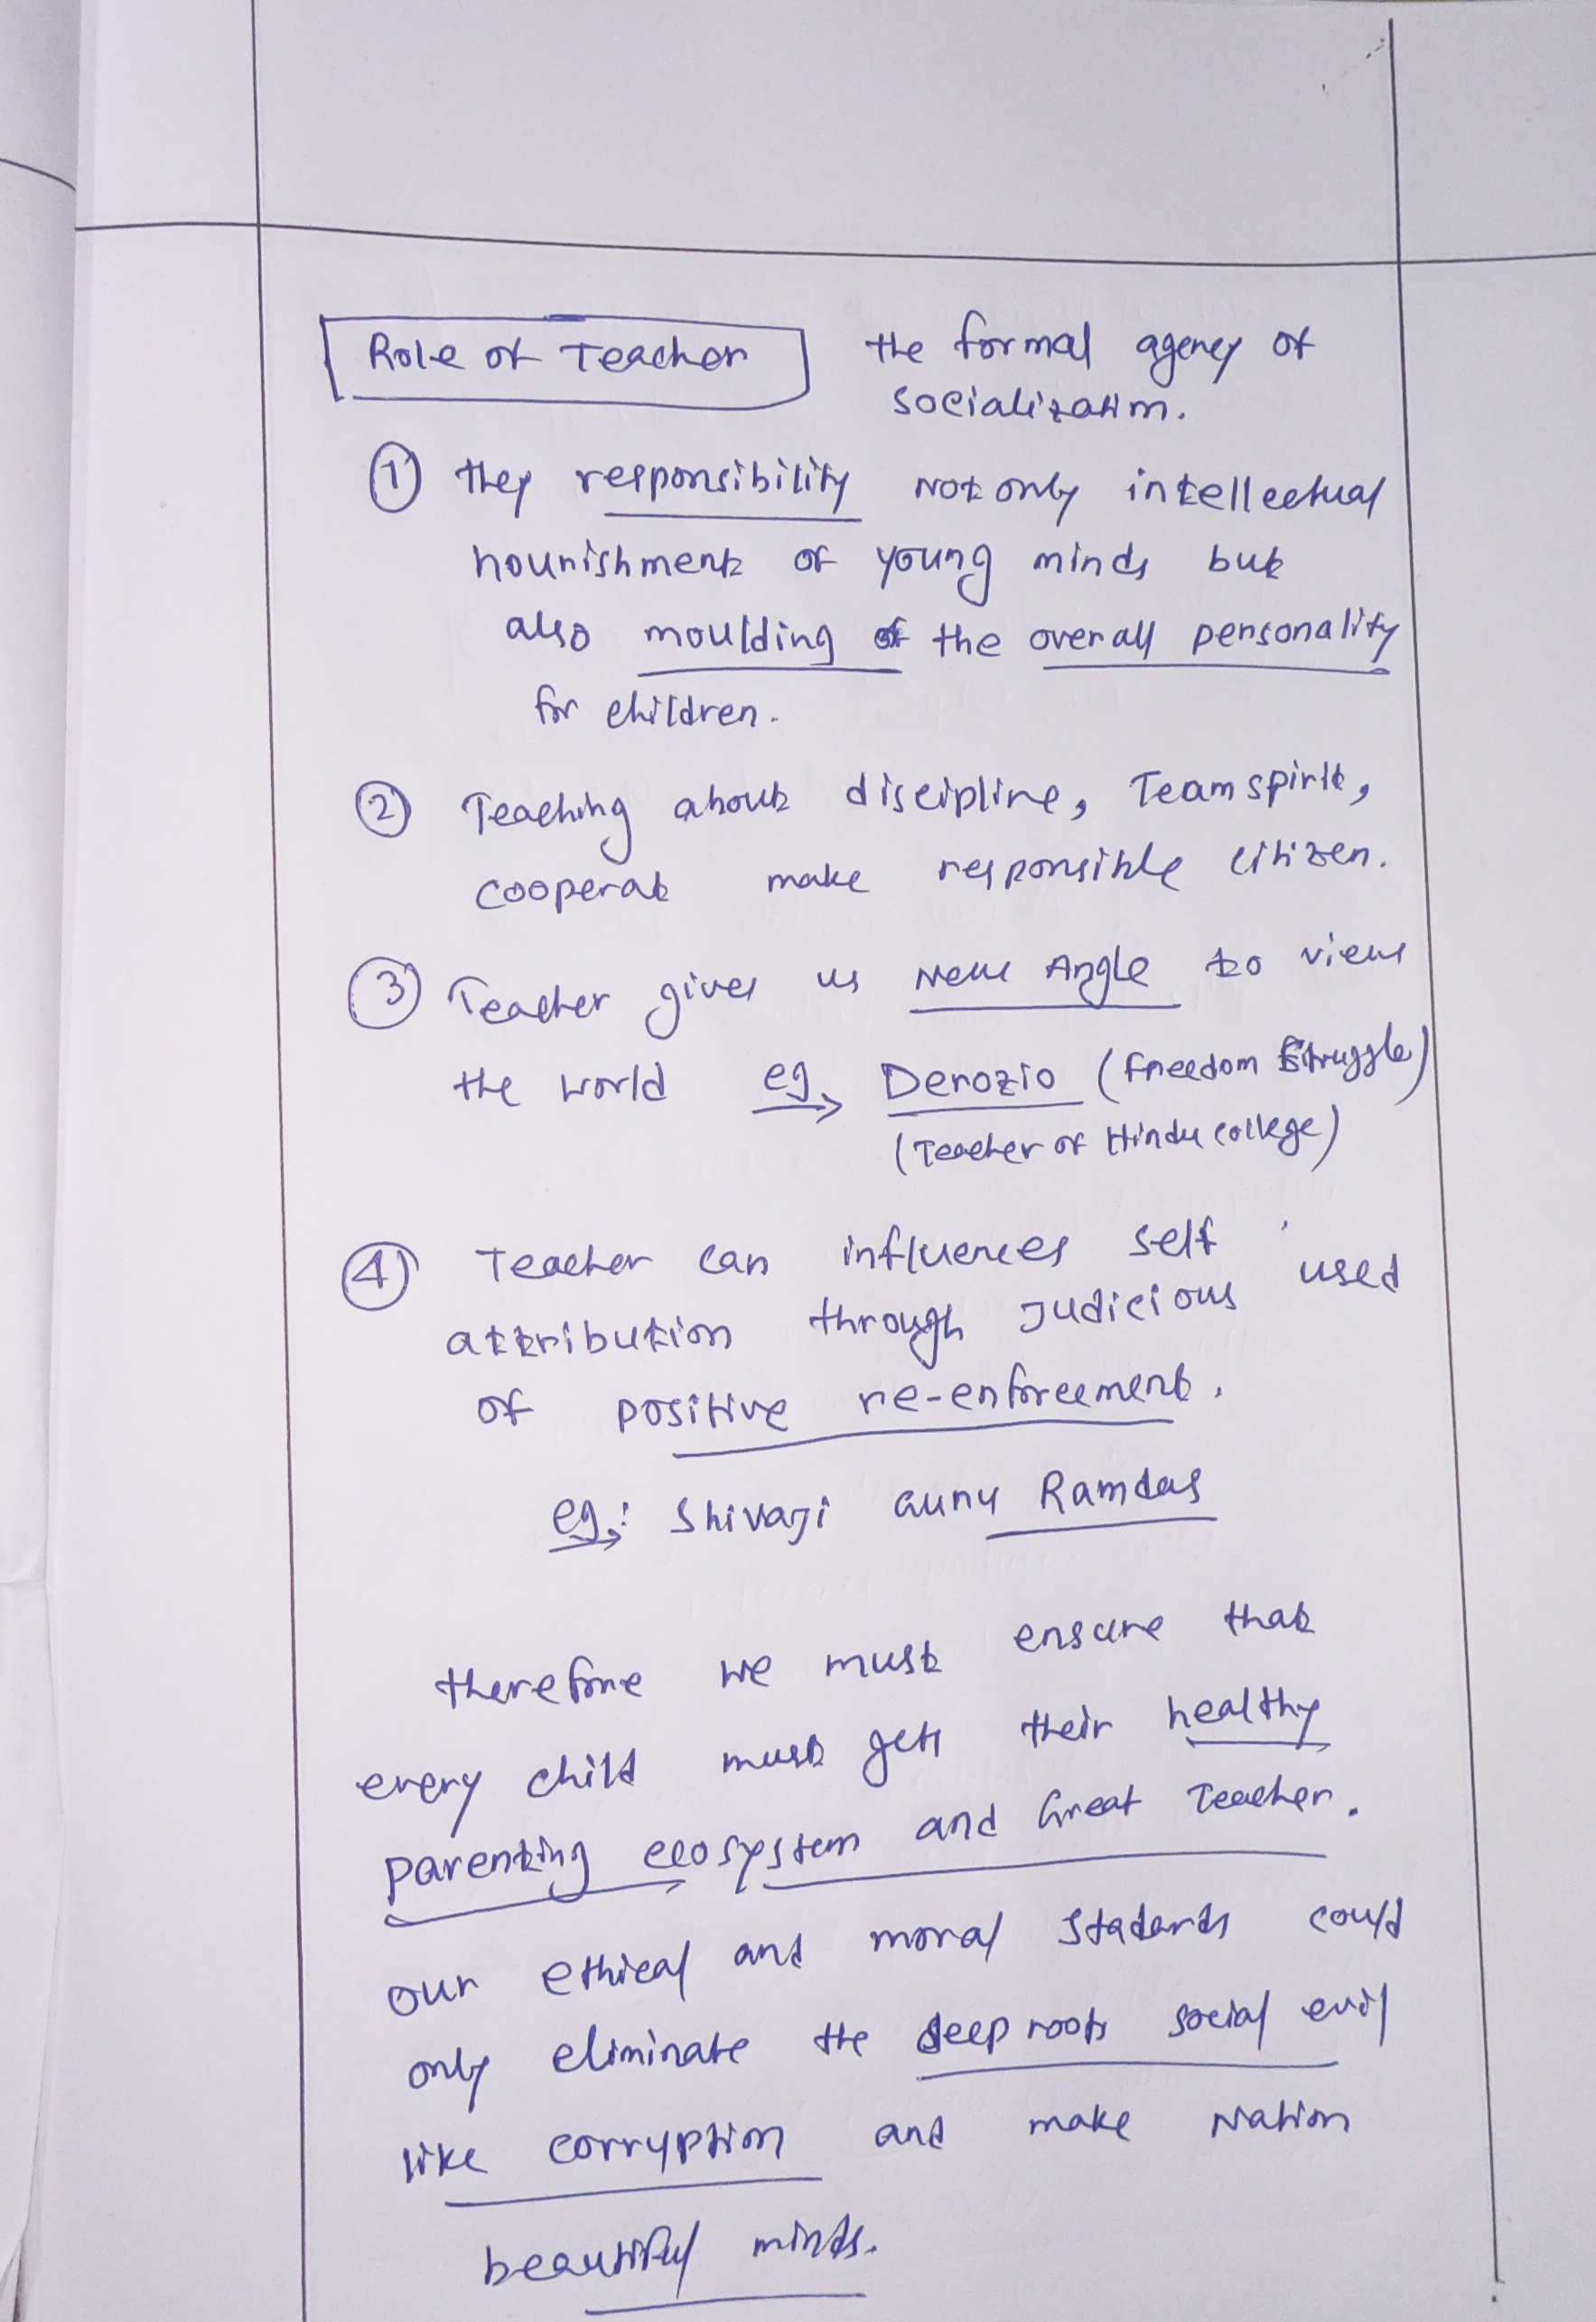 Role of Teacher the formal agency of
socialization.
① they responsibility Not only intellectual
nourishment of young minds but
also moulding of the overall personality
for children.
② Teaching about discipline, Team spirit,
cooperat make responsible citizen.
③ Teacher gives us New Angle to view
the world eg→ Derozio (freedom struggle)
(Teacher of Hindu college)
④ Teacher can influences self
attribution through judicious used
of positive re-enforcement.
eg: Shivaji Guru Ramdas
therefore we must ensure that
every child must gets their healthy
parenting ecosystem and Great Teacher.
our ethical and moral stadards could
only eliminate the deep roots social evil
like corruption and make Nation
beautiful minds.